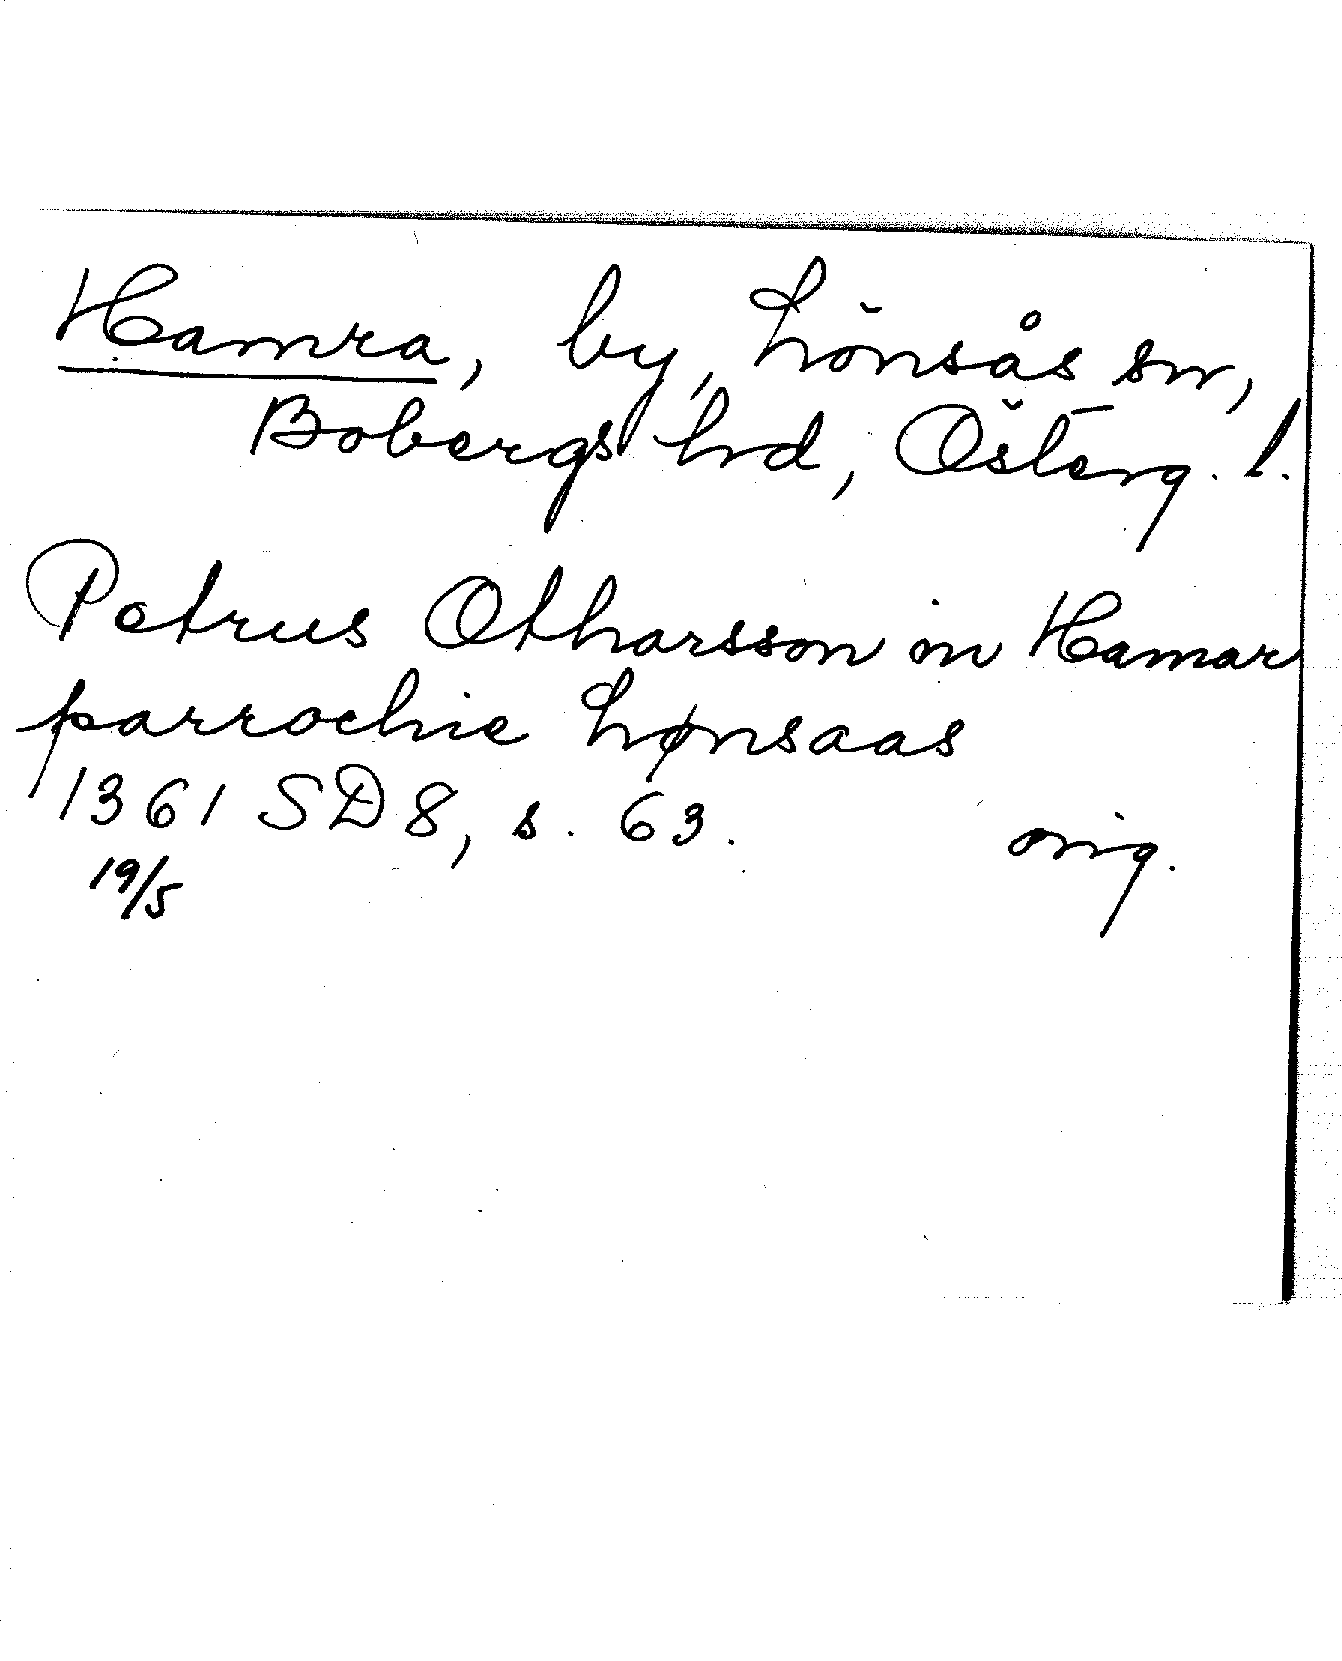 Hamra, by, Lönsås sn,
Bobergs hd, Österg. l.
Petrus Otharsson in Hamar
parrochie Lønsaas
1361 SD 8, s. 63. orig.
19/5